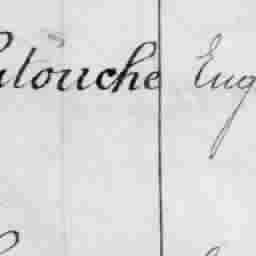 atouche Eug